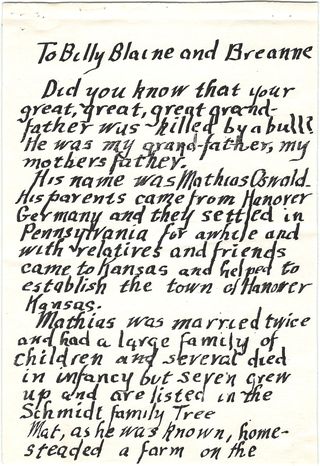 To Billy Blaine and Breanne
Did you know that your
great, great, great grand-
father was killed by a bull?
He was my grand-father, my
mothers father.
His name was Mathias Oswald.
His parents came from Hanover
Germany and they settled in
Pennsylvania for awhile and
with relatives and friends
came to Kansas and helped to
establish the town of Hanover
Kansas.
Mathias was married twice
and had a large family of
children and several died
in infancy but seven grew
up and are listed in the
Schmidt family Tree
Mat, as he was known, home-
steaded a farm on the